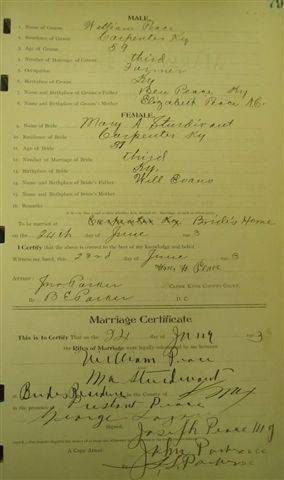 79
MALE
1. Name of Groom William Peace
2. Residence of Groom Carpenter Ky
3. Age of Groom 59
4. Number of Marriage of Groom third
5. Occupation Farmer
6. Birthplace of Groom Ky
7. Name and Birthplace of Groom's Father Ben Peace Ky
8. Name and Birthplace of Groom's Mother Elizabeth Peace N.C.
FEMALE
9. Name of Bride Mary A Sturdivant
10. Residence of Bride Carpenter Ky
11. Age of Bride
12. Number of Marriage of Bride third
13. Birthplace of Bride Ky
14. Name and Birthplace of Bride's Father Will Evans
15. Name and Birthplace of Bride's Mother
16. Remarks
To be married at Carpenter Ky Bride's Home
on the 24th day of June 190 3
I Certify that the above is correct to the best of my knowledge and belief.
Witness my hand, this 23rd day of June 190 3
Wm. H Peace
Attest:
Jno Parker CLERK KNOX COUNTY COURT.
By B E Parker D. C.
Marriage Certificate
This is to Certify That on the 24 day of 3
the Rites of Marriage were legally solemnized by me between
William Peace
Sturdivant
at Brides Residence in the County of Knox
in the presence of Preston Peace
George
Signed, Joseph Peace M g
A Copy Attest. John